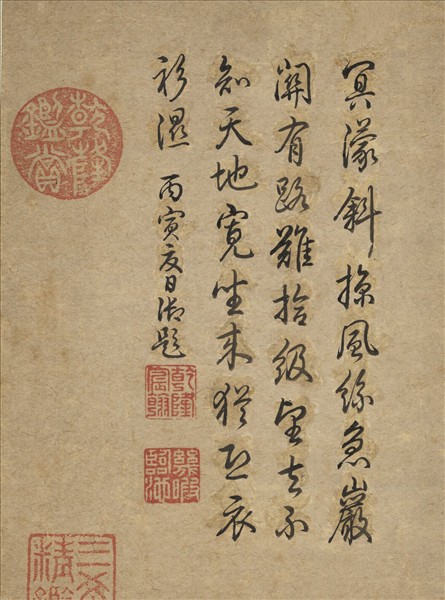 冥濛斜掠風絲急巖
關有路難拾級望去不
知天地寬坐來猶恐衣
衫濕 丙寅夏日御題
乾隆宸翰
幾暇臨池
乾隆鑑賞
三希
精鑑